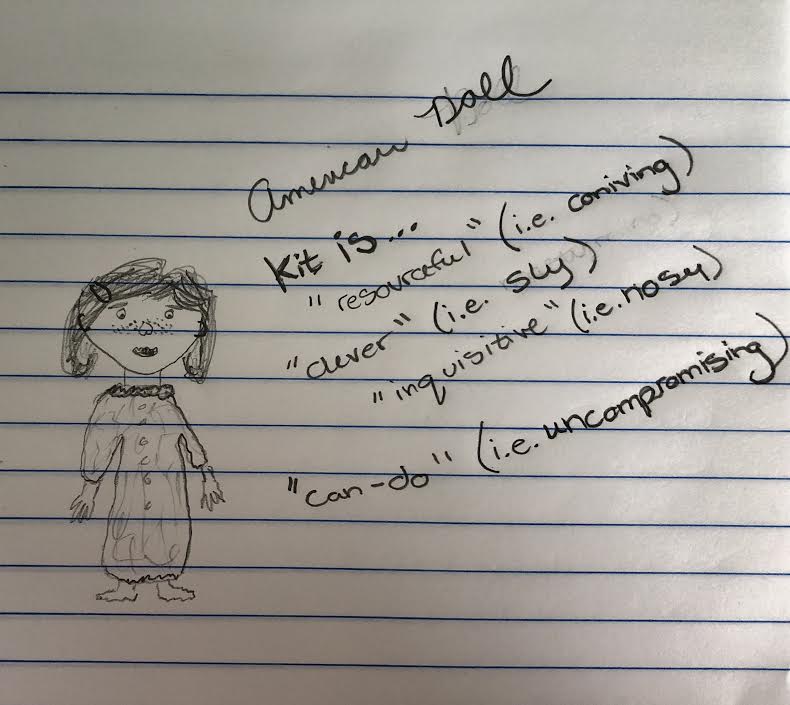 American Doll
Kit is...
"resourceful" (i.e. coniving)
"clever" (i.e. sly)
"inquisitive" (i.e. nosy)
"can-do" (i.e. uncompromising)